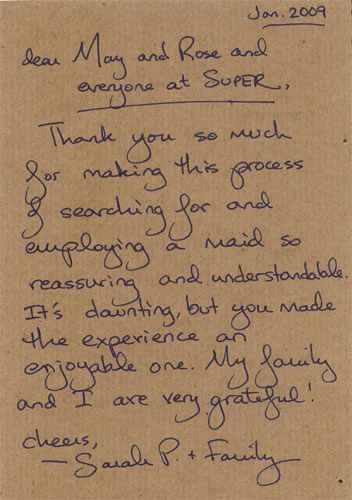 Jan. 2009
dear May and Rose and
everyone at SUPER,
Thank you so much
for making this process
of searching for and
employing a maid so
reassuring and understandable.
It's daunting, but you made
the experience an
enjoyable one. My family
and I are very grateful!
cheers,
— Sarah P. + Family